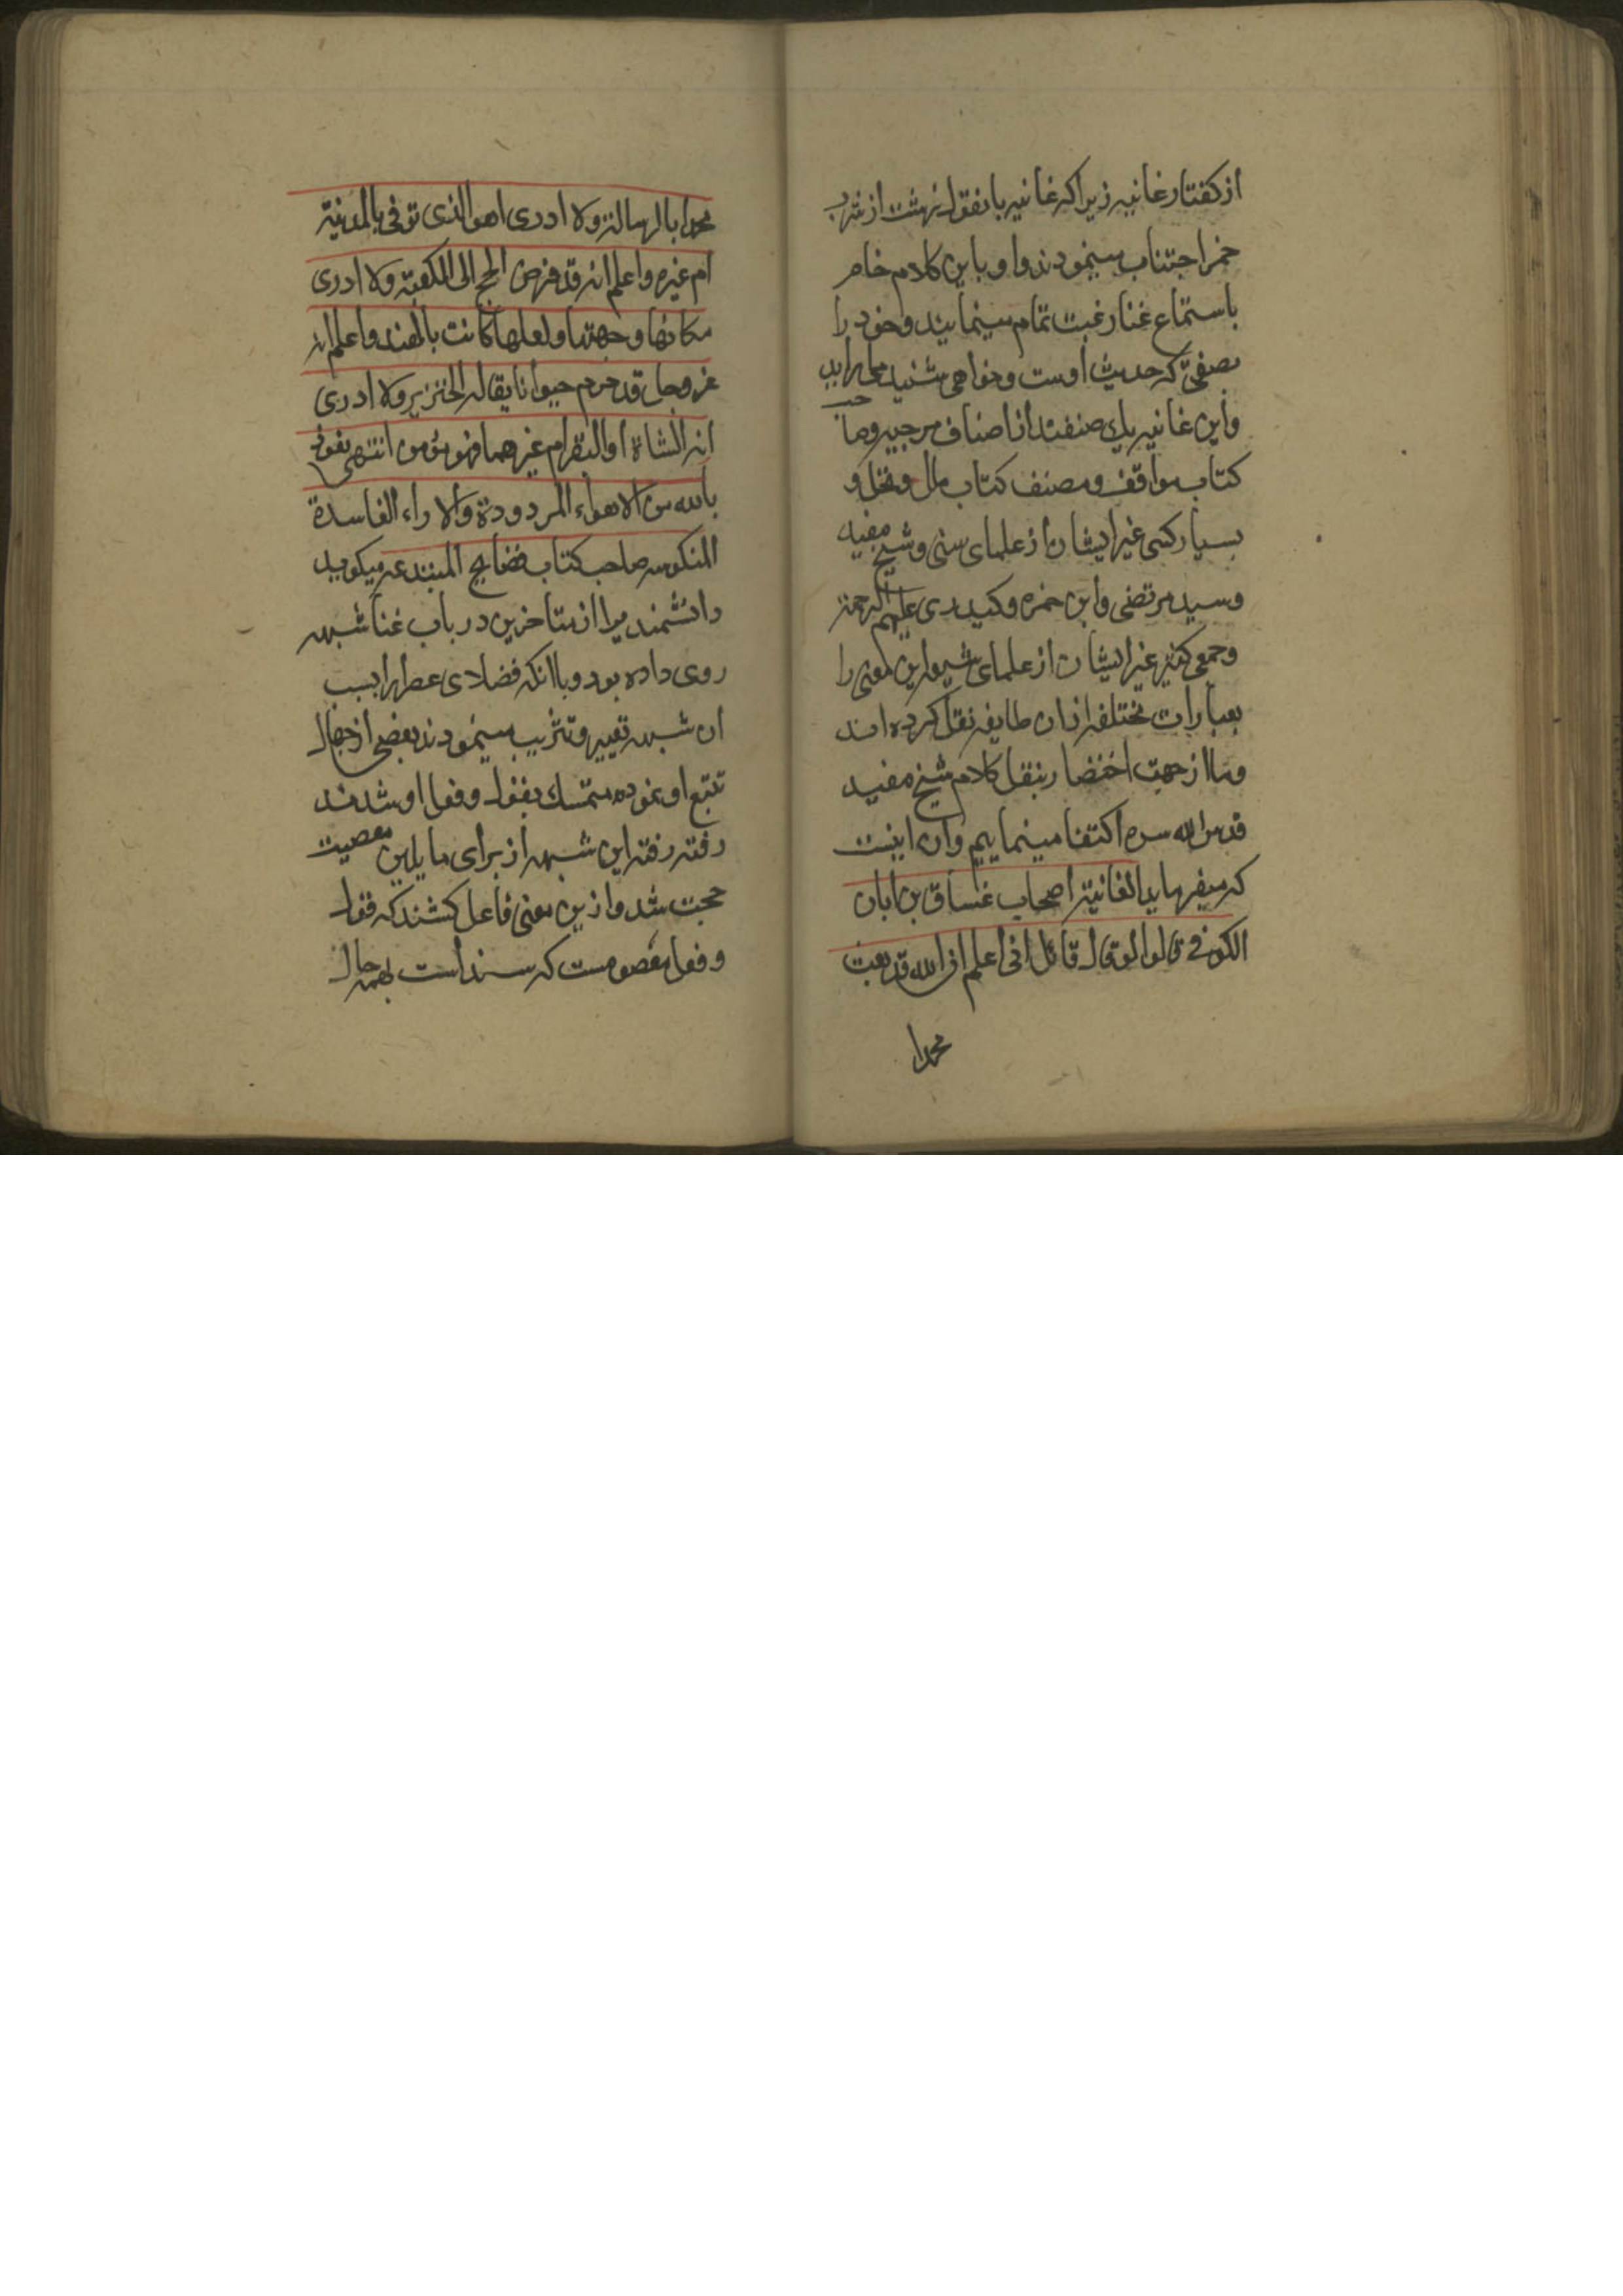 از کفتار غانیه زیرا که غانیه با نقول زشت از شرب
خمر اجتناب مینمودند و او با این کلام خام
باستماع غنا رغبت تمام مینمایند و خود را
که حدیث اوست و خواهی شنید
و این غانیه یك صنفند از اصناف مرجیه و صاحب
کتاب مواقف و مصنف کتاب ملل و نحل و
بسیار کسی غیر ایشان از علمای سنی و شیخ مفید
و سید مرتضی و ابن حمزه و کیدری علیهم الرحمة
و جمعی کثیر غیر ایشان از علمای شیعه این معنی را
بعبارات مختلفه از ان طایفه نقل کرده اند
و ما از جهت اختصار بنقل کلام شیخ مفید
قدس الله سره اکتفا مینماییم و ان اینست
که میفرماید الغانیة اصحاب غساق بن ابان
الکوفی قالوا لو قال قائل انی اعلم ان الله قد بعث
محمدا
محمدا بالرسالة ولا ادری اهو الذی توفی بالمدینة
ام غیره واعلم انه قد فرض الحج الی الکعبة ولا ادری
مکانها وجهتها ولعلها کانت بالهند واعلم انه
عز وجل قد حرم حیوانا یقال له الخنزیر ولا ادری
انه الشاة او البقر ام غیرهما فهو مؤمن انتهی نعوذ
بالله من الاهواء المردودة والاراء الفاسدة
المنکوسه صاحب کتاب فضایح المبتدعه میکوید
دانشمندی را از متاخرین در باب غنا شبهه
روی داده بود و با انکه فضلای عصر او را بسبب
ان شبهه تعییر و تثریب مینمودند بعضی از جهال
تتبع او نموده متمسك بقول و فعل او شدند
رفته رفته این شبهه از برای مایلین معصیت
حجت شد و ازین معنی غافل کشتند که قول
و فعل معصومست که سند است بهمه حال